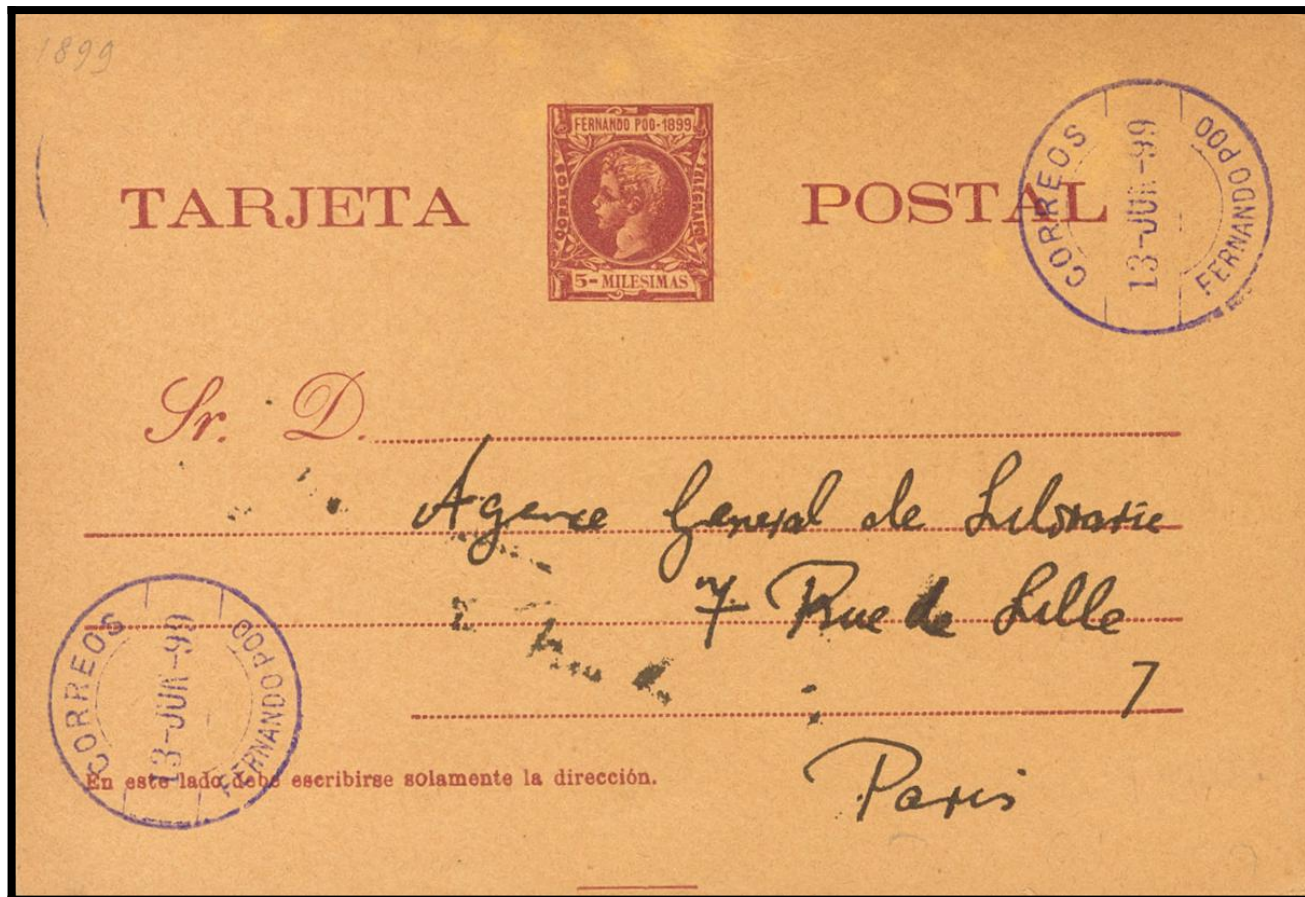 1899
FERNANDO POO-1899
CORREOS
TELEGRAFO
5= MILESIMAS
TARJETA POSTAL
CORREOS
13-JUN-99
FERNANDO POO
Sr. D.
Agence General de Librarie
7 Rue de Lille
7
Paris
CORREOS
13-JUN-99
FERNANDO POO
En este lado debe escribirse solamente la dirección.